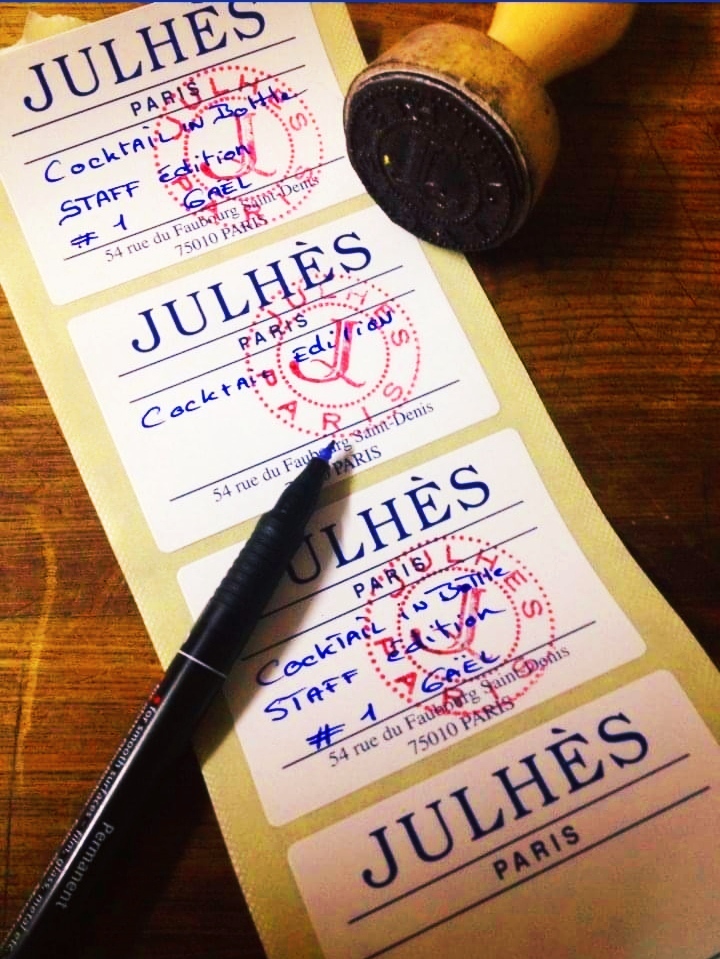 JULHÈS
PARIS
Cocktail in Bottle
STAFF Edition
# 1 GAËL
54 rue du Faubourg Saint-Denis
75010 PARIS
JULHES
PARIS
JULHÈS
PARIS
Cocktail Edition
54 rue du Faubourg Saint-Denis
PARIS
JULHES
PARIS
JULHÈS
PARIS
Cocktail in Bottle
STAFF Edition
# 1 GAËL
54 rue du Faubourg Saint-Denis
75010 PARIS
JULHES
PARIS
JULHÈS
PARIS
for smooth surfaces - film, glass, metal etc.
Permanent